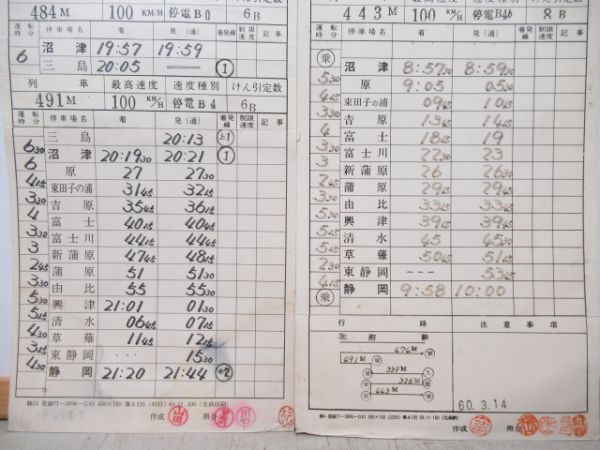 484M 100 KM/H 停電B0 6B
運転時分 停車場名 着 発(通) 着発線 制限速度 記事
6 沼津 19:57 19:59
三島 20:05 ①
列車 最高速度 速度種別 けん引定数
491M 100 KM/H 停電B4 6B
運転時分 停車場名 着 発(通) 着発線 制限速度 記事
三島 20:13 上1
6 30 沼津 20:19 30 20:21 ①
6 原 27 27 30
4 15 東田子の浦 31 45 32 15
3 30 吉原 35 45 36 15
4 富士 40 15 40 45
3 30 富士川 44 15 44 45
3 新蒲原 47 45 48 15
2 45 蒲原 51 51 30
3 30 由比 55 55 30
5 30 興津 21:01 01 30
5 15 清水 06 45 07 15
4 30 草薙 11 45 12 15
3 15 東静岡 15 30
4 30 静岡 21:20 21:44 中2
作成 照合
443M 100 KM/H 停電B46 8B
運転時分 停車場名 着 発(通) 着発線 制限速度 記事
乗 沼津 8:57 30 8:59 30
5 30 原 9:05 05 30
東田子の浦 09 45 10 15
吉原 13 45 14 15
4 富士 18 15 19
3 30 富士川 22 30 23
3 新蒲原 26 26 30
蒲原 29 15 29 45
由比 33 15 33 45
5 30 興津 39 15 39 45
清水 45 45 30
草薙 50 45 51 15
東静岡 --- 53 45
乗 静岡 9:58 10:00
行路 注意事項
676M
691M
339M
326M
663M
60.3.14
作成 照合